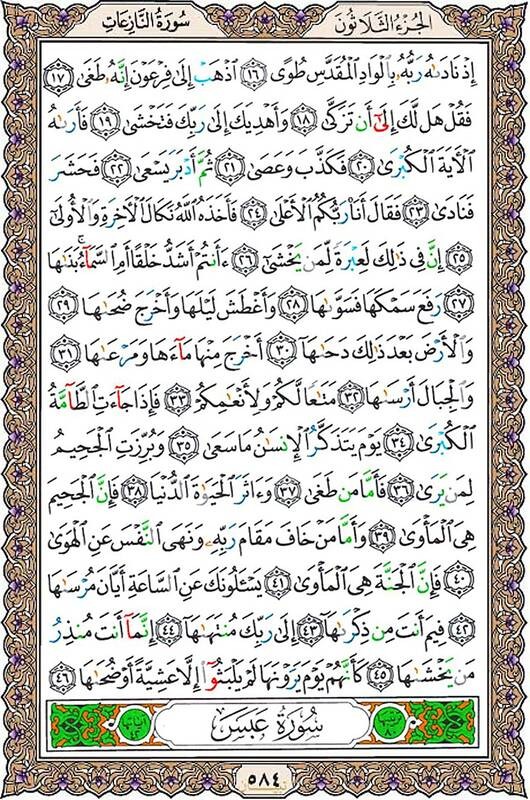 الجُزْءُ الثَّلَاثُونَ سُورَةُ النَّازِعَاتِ
إِذْ نَادَىٰهُ رَبُّهُۥ بِٱلْوَادِ ٱلْمُقَدَّسِ طُوًى ١٦ ٱذْهَبْ إِلَىٰ فِرْعَوْنَ إِنَّهُۥ طَغَىٰ ١٧
فَقُلْ هَل لَّكَ إِلَىٰٓ أَن تَزَكَّىٰ ١٨ وَأَهْدِيَكَ إِلَىٰ رَبِّكَ فَتَخْشَىٰ ١٩ فَأَرَىٰهُ
ٱلْءَايَةَ ٱلْكُبْرَىٰ ٢٠ فَكَذَّبَ وَعَصَىٰ ٢١ ثُمَّ أَدْبَرَ يَسْعَىٰ ٢٢ فَحَشَرَ
فَنَادَىٰ ٢٣ فَقَالَ أَنَا۠ رَبُّكُمُ ٱلْأَعْلَىٰ ٢٤ فَأَخَذَهُ ٱللَّهُ نَكَالَ ٱلْءَاخِرَةِ وَٱلْأُولَىٰٓ
٢٥ إِنَّ فِى ذَٰلِكَ لَعِبْرَةً لِّمَن يَخْشَىٰٓ ٢٦ ءَأَنتُمْ أَشَدُّ خَلْقًا أَمِ ٱلسَّمَآءُ ۚ بَنَىٰهَا
٢٧ رَفَعَ سَمْكَهَا فَسَوَّىٰهَا ٢٨ وَأَغْطَشَ لَيْلَهَا وَأَخْرَجَ ضُحَىٰهَا ٢٩
وَٱلْأَرْضَ بَعْدَ ذَٰلِكَ دَحَىٰهَآ ٣٠ أَخْرَجَ مِنْهَا مَآءَهَا وَمَرْعَىٰهَا ٣١
وَٱلْجِبَالَ أَرْسَىٰهَا ٣٢ مَتَٰعًا لَّكُمْ وَلِأَنْعَٰمِكُمْ ٣٣ فَإِذَا جَآءَتِ ٱلطَّآمَّةُ
ٱلْكُبْرَىٰ ٣٤ يَوْمَ يَتَذَكَّرُ ٱلْإِنسَٰنُ مَا سَعَىٰ ٣٥ وَبُرِّزَتِ ٱلْجَحِيمُ
لِمَن يَرَىٰ ٣٦ فَأَمَّا مَن طَغَىٰ ٣٧ وَءَاثَرَ ٱلْحَيَوٰةَ ٱلدُّنْيَا ٣٨ فَإِنَّ ٱلْجَحِيمَ
هِىَ ٱلْمَأْوَىٰ ٣٩ وَأَمَّا مَنْ خَافَ مَقَامَ رَبِّهِۦ وَنَهَى ٱلنَّفْسَ عَنِ ٱلْهَوَىٰ
٤٠ فَإِنَّ ٱلْجَنَّةَ هِىَ ٱلْمَأْوَىٰ ٤١ يَسْـَٔلُونَكَ عَنِ ٱلسَّاعَةِ أَيَّانَ مُرْسَىٰهَا
٤٢ فِيمَ أَنتَ مِن ذِكْرَىٰهَآ ٤٣ إِلَىٰ رَبِّكَ مُنتَهَىٰهَآ ٤٤ إِنَّمَآ أَنتَ مُنذِرُ
مَن يَخْشَىٰهَا ٤٥ كَأَنَّهُمْ يَوْمَ يَرَوْنَهَا لَمْ يَلْبَثُوٓا۟ إِلَّا عَشِيَّةً أَوْ ضُحَىٰهَا ٤٦
سُورَةُ عَبَسَ
٥٨٤